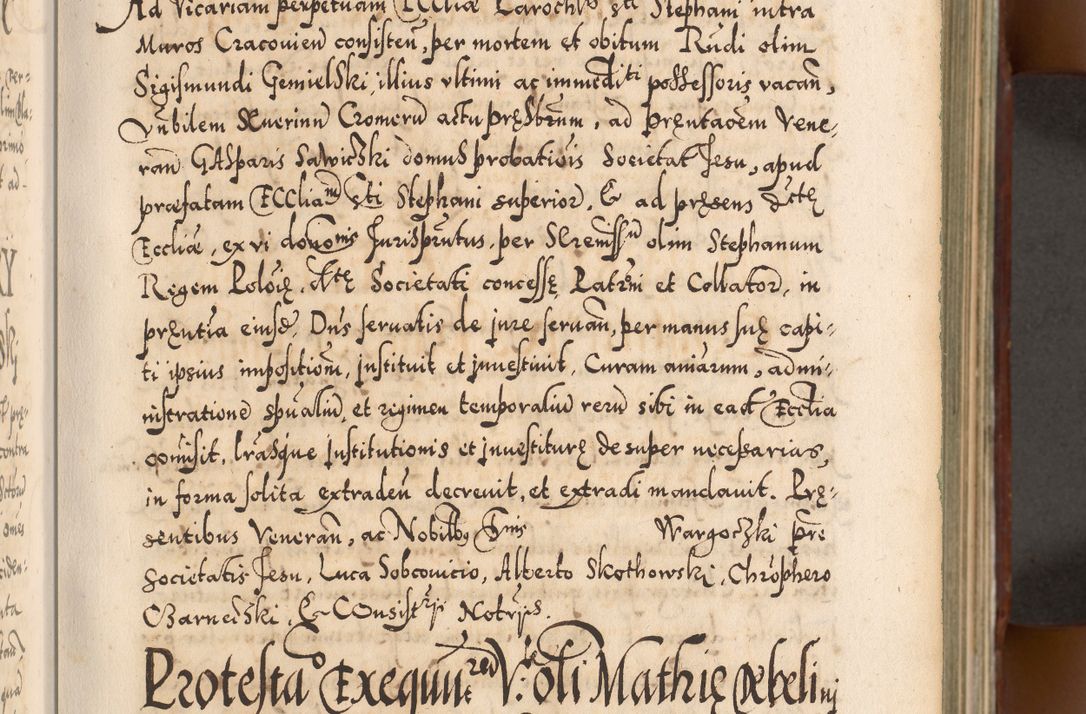 Ad Vicariam perpetuam ECCliæ Paroch. Sti Stephani intra
Muros Cracovien consisten, per mortem et obitum Rudi olim
Sigismundi Gemielski, illius vltimi ac immediti possessoris vacan,
Vnbilem Seuerinu Cromeru actu pręsbrum, ad pręntaoem Vene-
ran GASparis Sawiczki domus probatiois Societat Jesu, apud
præfatam ECCliam Sti Stephani superior, & ad pręsens dctę
Eccliæ, ex vi donomis Jurisprutus, per Sereniss olim Stephanum
Regem Poloię, dtę Societati concessę Patrni et Collator, in
pręntia eiusd. Dns seruatis de jure seruan, per manus suę capi-
ti ipsius impositiom, jnstituit et jnuestiuit, Curam aniarum, admi-
nistratione spualiu, et regimen temporaliu reru sibi in ead Ecclia
comisit, lrasque Institutionis et jnuestiturę desuper necessarias,
in forma solita extraden decreuit, et extradi mandauit. Prę-
sentibus Veneran, ac Nobilbs Dnis Wargoczki pre
societatis Jesu, Luca Sobcouicio, Alberto Skothowski, Chrophero
Czarnecski, & COnsistrij Notrijs.
Protesta Exequu V. oli Mathię Xebelinj